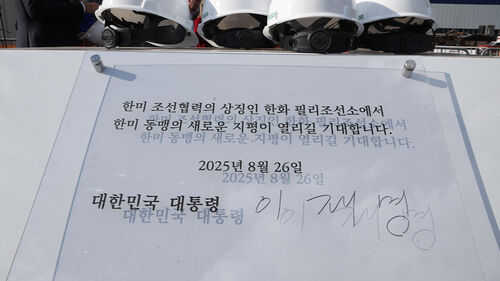 한미 조선협력의 상징인 한화 필리조선소에서
한미 동맹의 새로운 지평이 열리길 기대합니다.
2025년 8월 26일
대한민국 대통령 이재명